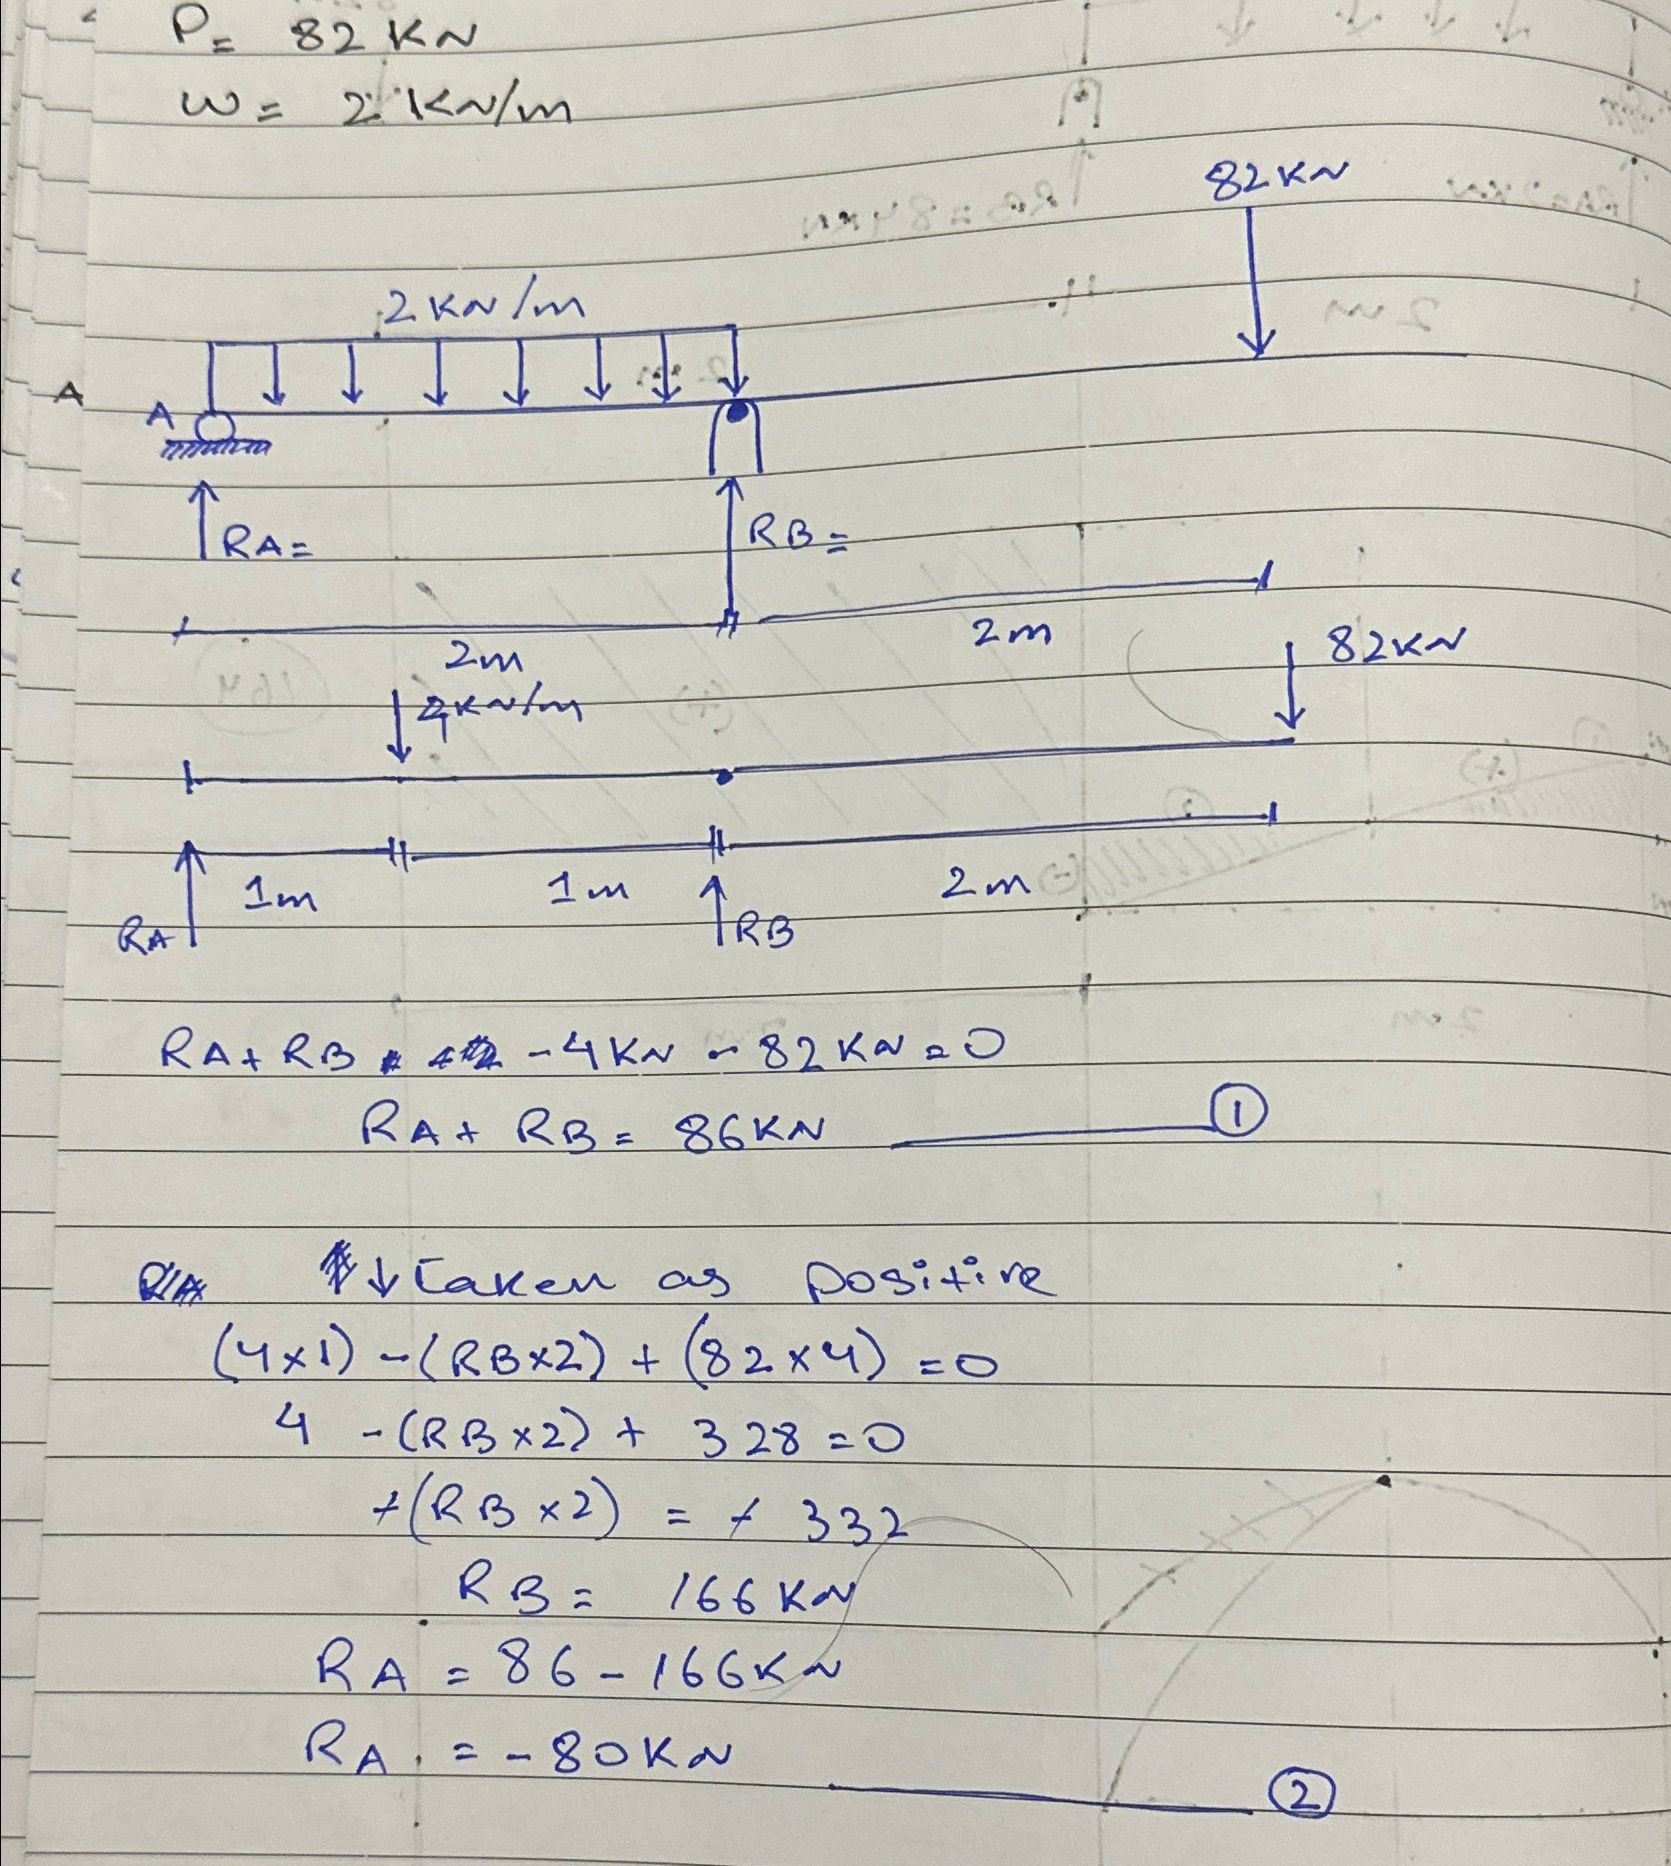 P = 82 KN
W = 2 KN/m
82 KN
2 KN/m
A
A
RA =
RB =
2m
2m
82KN
4KN/m
1m
1m
2m
RA
RB
RA + RB - 4KN - 82KN = 0
RA + RB = 86KN ①
↓ taken as positive
(4×1) - (RB×2) + (82×4) = 0
4 - (RB×2) + 328 = 0
+(RB×2) = + 332
RB = 166 KN
RA = 86 - 166KN
RA = - 80KN ②